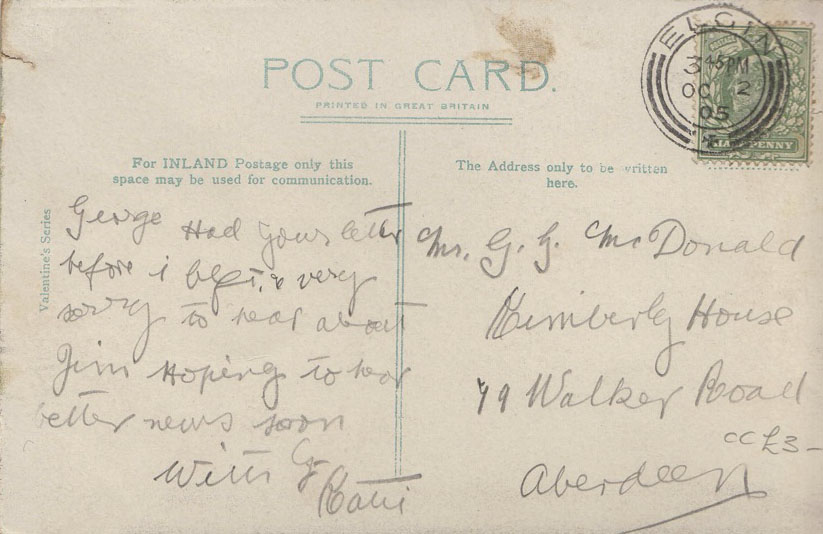 POST CARD.
PRINTED IN GREAT BRITAIN
ELGIN
3 45 PM
OC 2
05
HALFPENNY
For INLAND Postage only this
space may be used for communication.
The Address only to be written
here.
Valentine's Series
George Had your letter
before i left, & very
sorry to hear about
Jim Hoping to hear
better news soon
With
Katie
Mr. G. G. McDonald
Kimberly House
79 Walker Road
Aberdeen
CC £3-